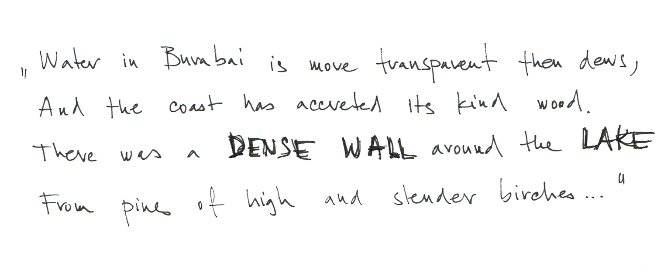 „Water in Burabai is more transparent then dews,
And the coast has accreted its kind wood.
There was a DENSE WALL around the LAKE
From pines of high and slender birches..."